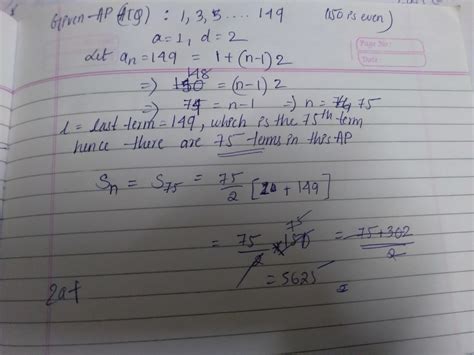 Given AP (ATQ) : 1, 3, 5 .... 149 (150 is even)
a=1, d=2
Let an=149 = 1+(n-1)2
=) 148 = (n-1) 2
=) 74 = n-1 =) n = 75
l = last term = 149, which is the 75th term
hence there are 75 terms in this AP
Sn = S75 = 75/2 [ + 149]
= 75/2 × 150 75 = 75+302/2
= 5625
2a+
Page No.:
Date